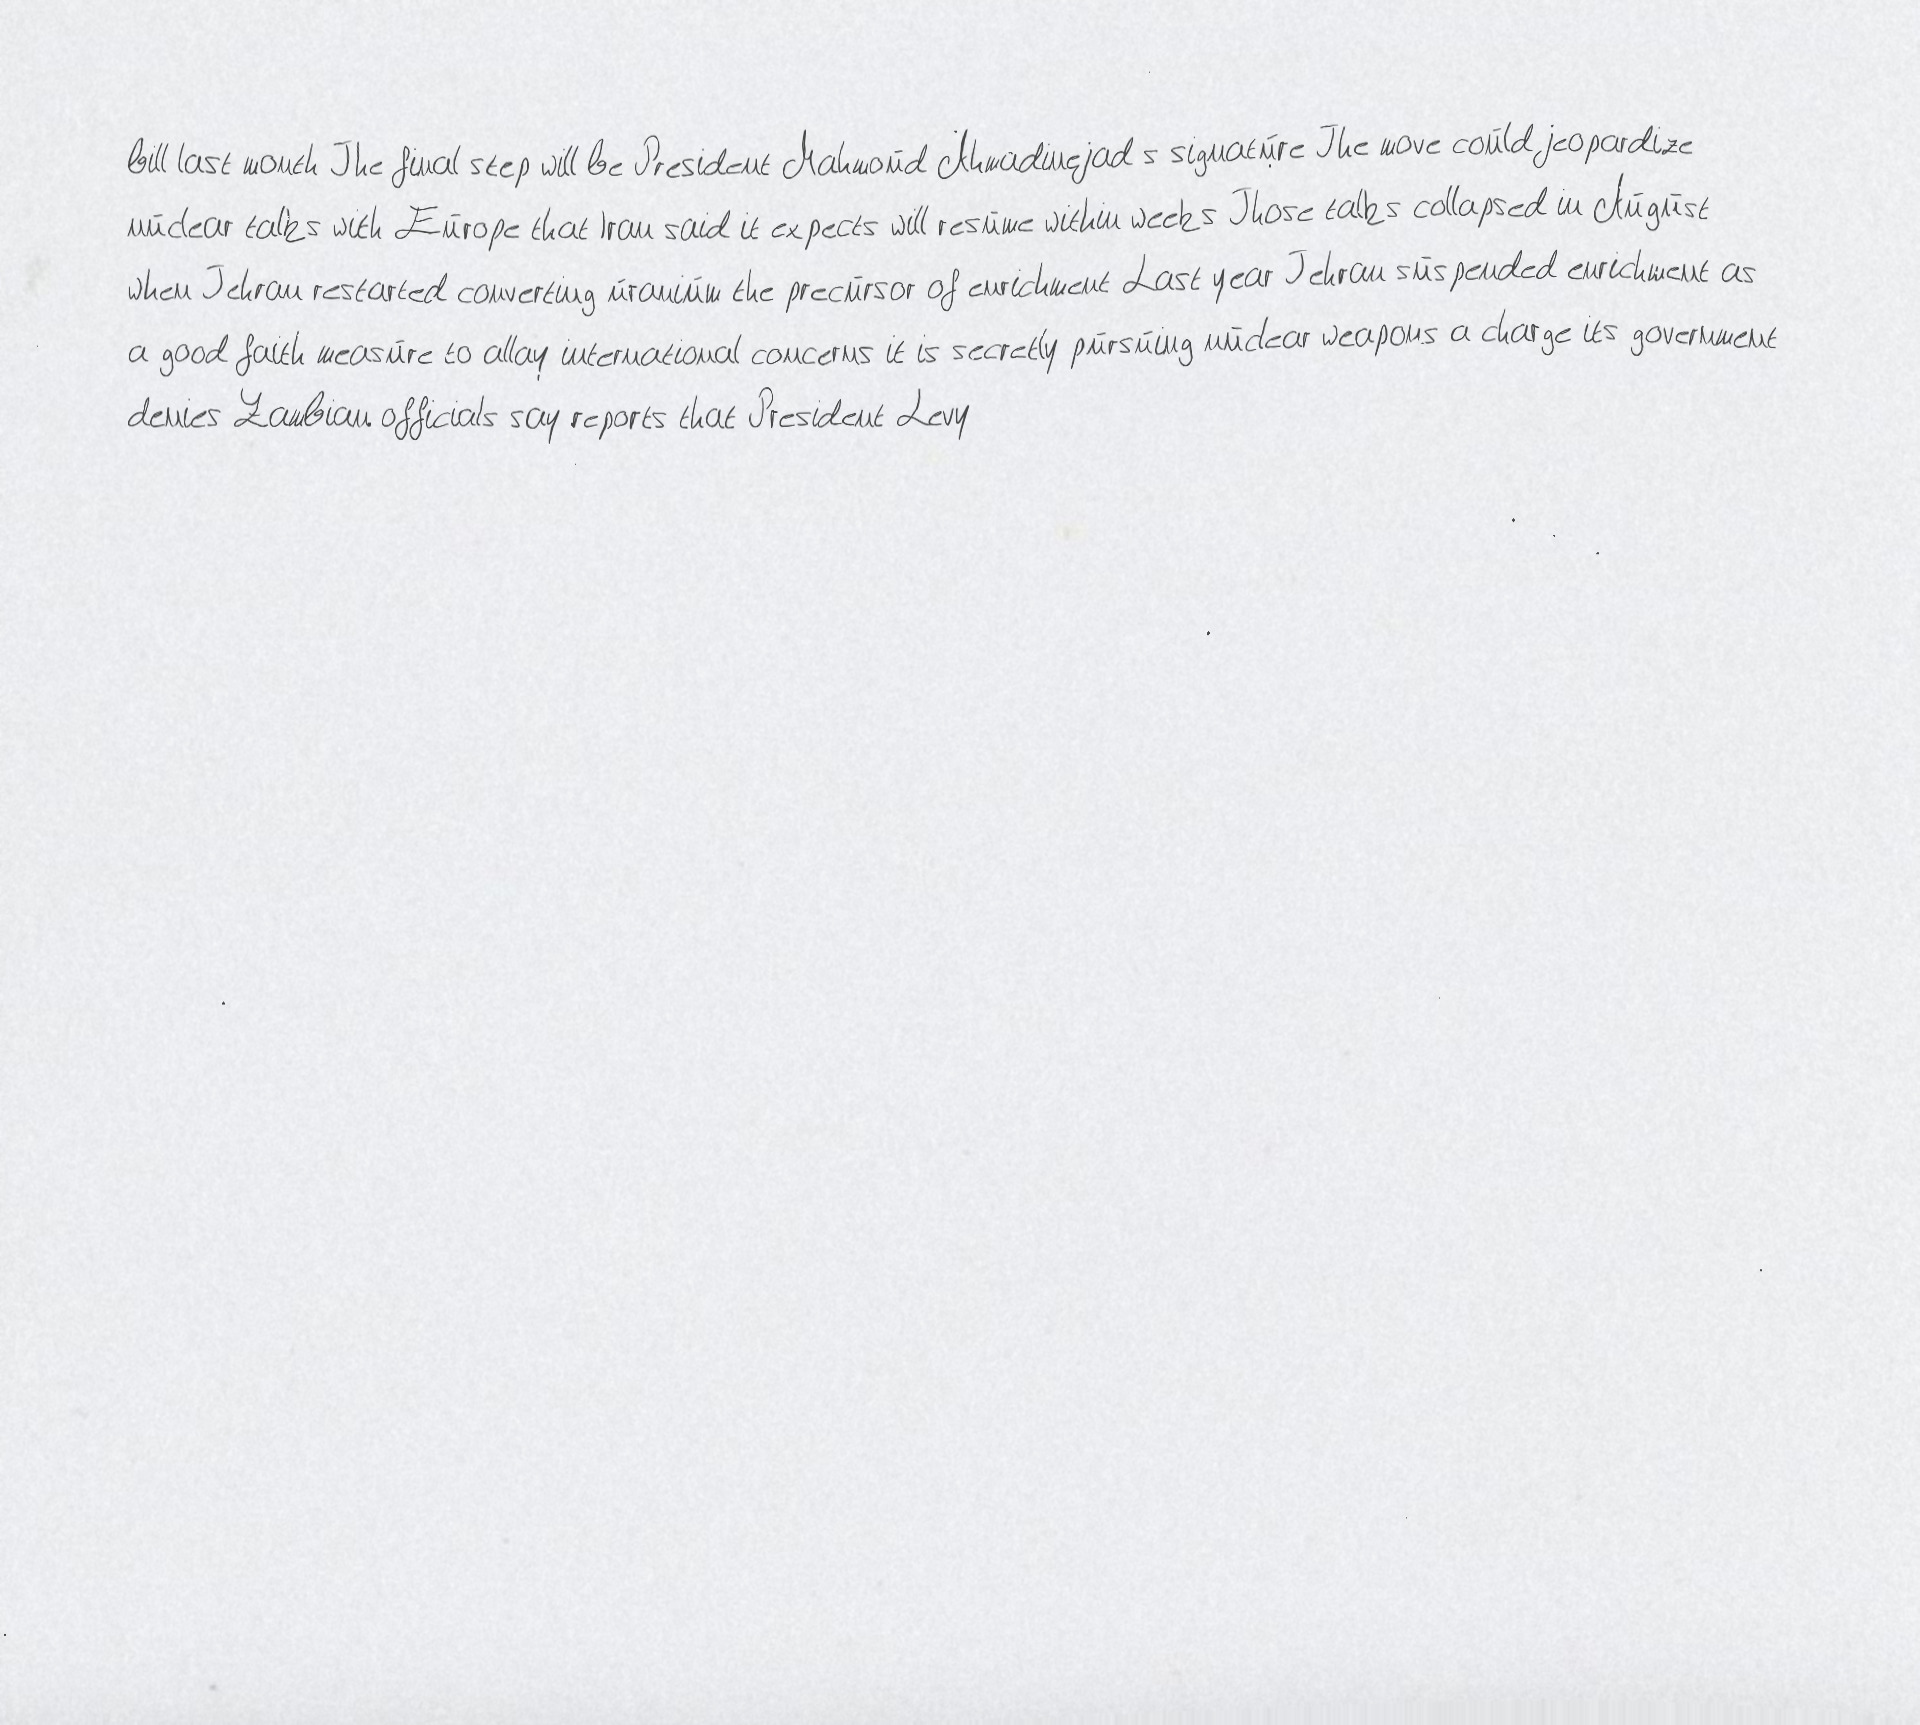 bill last month The final step will be President Mahmoud Ahmadinejad s signature The move could jeopardize
nuclear talks with Europe that Iran said it expects will resume within weeks Those talks collapsed in August
when Tehran restarted converting uranium the precursor of enrichment Last year Tehran suspended enrichment as
a good faith measure to allay international concerns it is secretly pursuing nuclear weapons a charge its government
denies Zambian officials say reports that President Levy